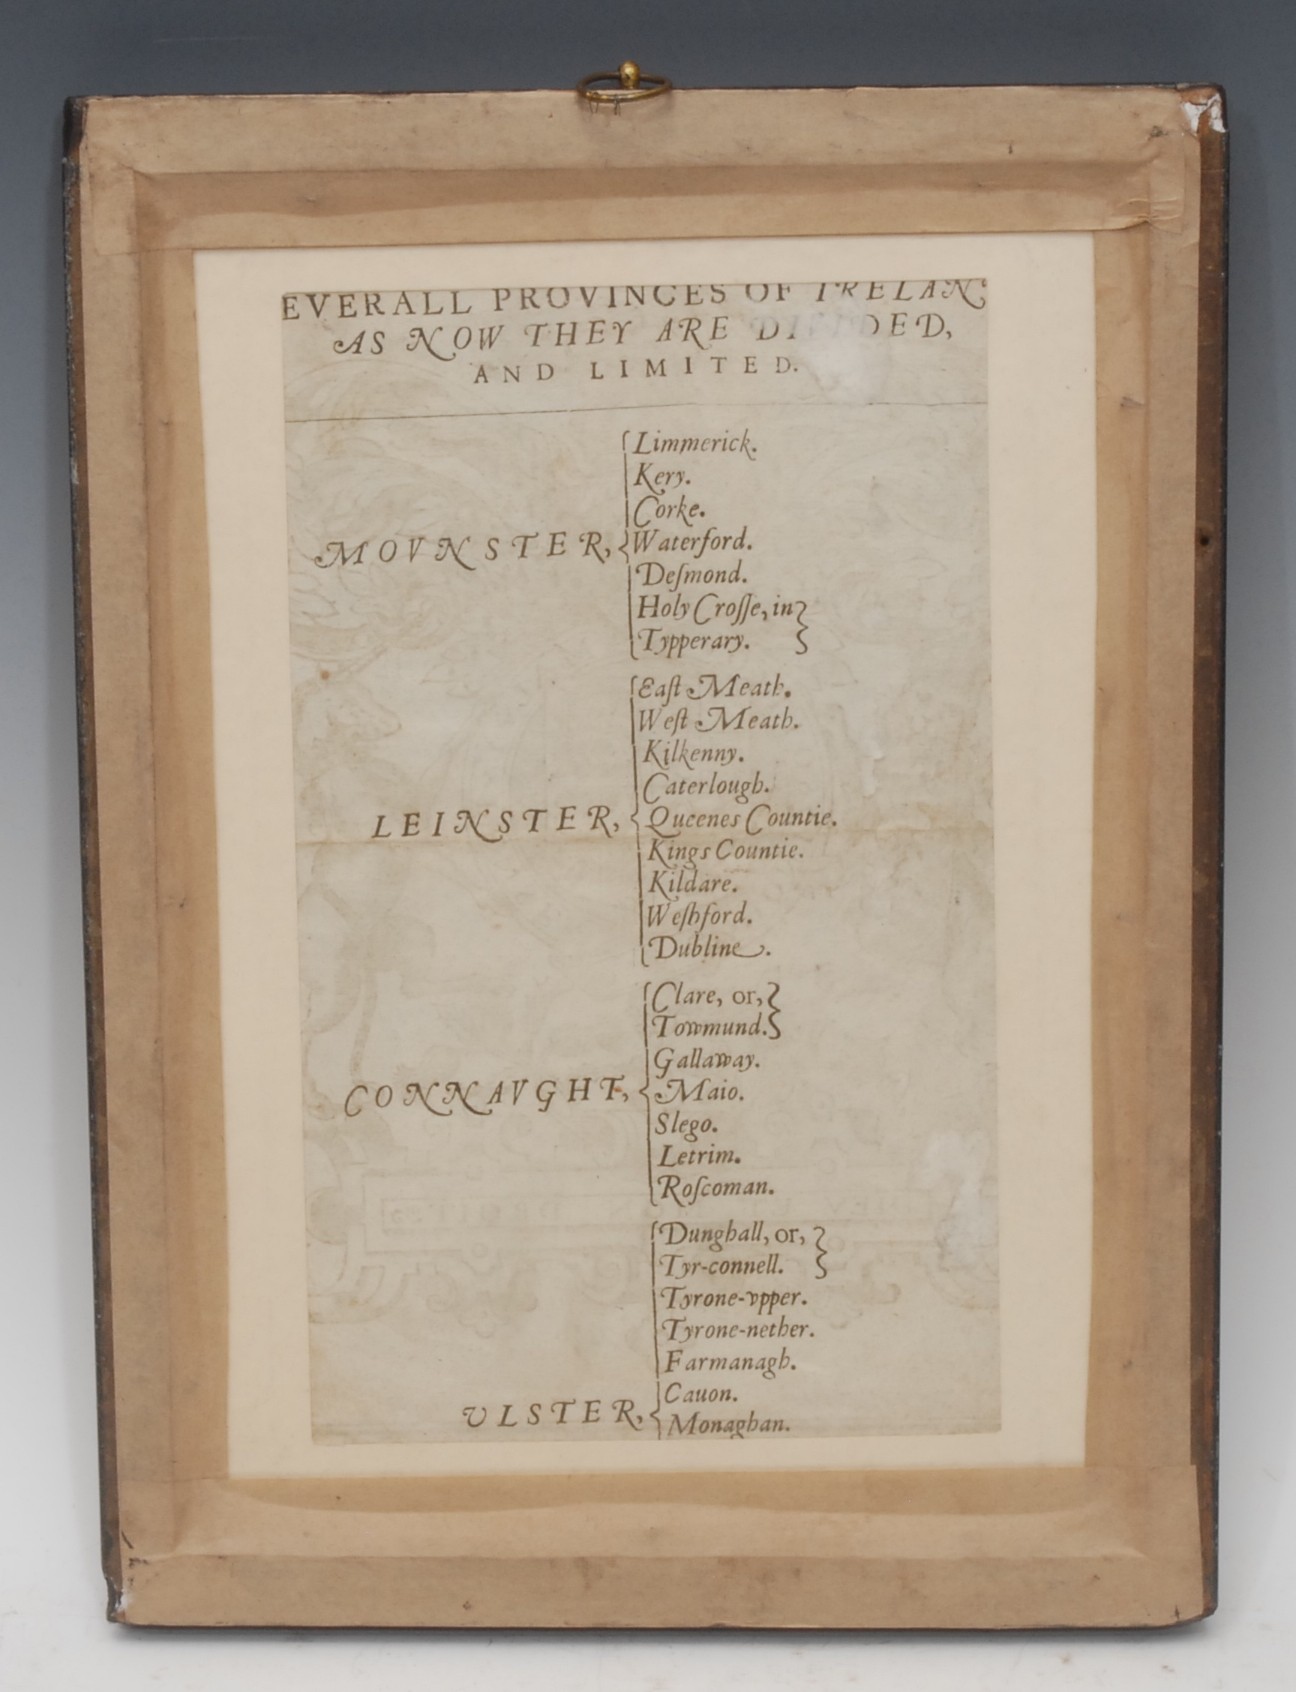 EVERALL PROVINCES OF IRELAN
AS NOW THEY ARE
AND LIMITED.
MOVNSTER,
Limmerick.
Kery.
Corke.
Waterford.
Deſmond.
Holy Croſſe, in
Typperary.
LEINSTER,
Eaſt Meath.
Weſt Meath.
Kilkenny.
Caterlough.
Queenes Countie.
Kings Countie.
Kildare.
Weſhford.
Dubline.
CONNAVGHT,
Clare, or,
Towmund.
Gallaway.
Maio.
Slego.
Letrim.
Roſcoman.
ULSTER,
Dunghall, or,
Tyr-connell.
Tyrone-vpper.
Tyrone-nether.
Farmanagh.
Cauon.
Monaghan.